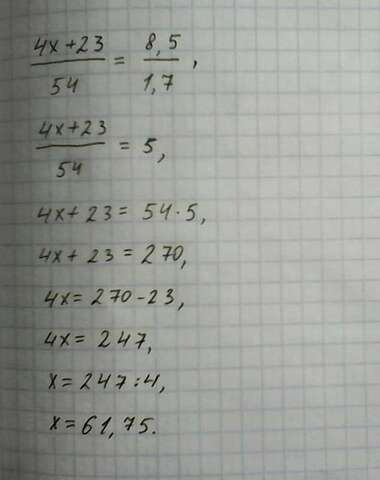 (4x+23)/54 = 8,5/1,7,
(4x+23)/54 = 5,
4x+23=54·5,
4x+23=270,
4x=270-23,
4x=247,
x=247:4,
x=61,75.